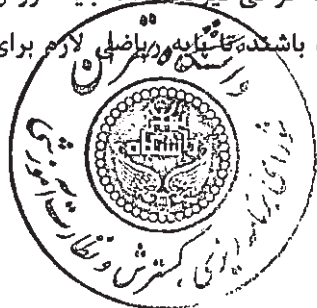 باشند، تا پایه ریاضی لازم برای
دانشگاه تهران
شورای برنامه‌ریزی، گسترش و نظارت آموزشی